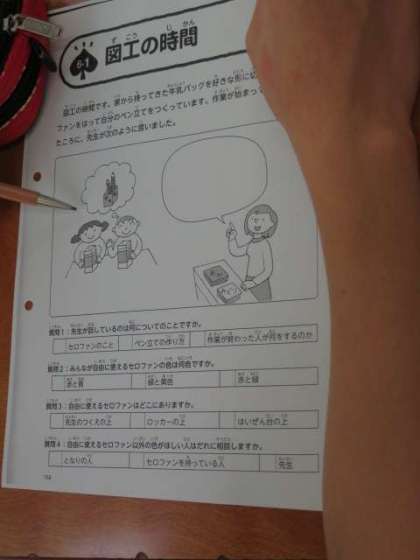 6-1
図工の時間
図工の時間です。家から持ってきた牛乳パックを好きな形に切
ファンをはって自分のペン立てをつくっています。作業が始まって
たところに、先生が次のように言いました。
質問1：先生が話しているのは何についてのことですか。
セロファンのこと ペン立ての作り方 作業が終わった人が何をするのか
質問2：みんなが自由に使えるセロファンの色は何色ですか。
赤と青 緑と黄色 赤と緑
質問3：自由に使えるセロファンはどこにありますか。
先生のつくえの上 ロッカーの上 はいぜん台の上
質問4：自由に使えるセロファン以外の色がほしい人はだれに相談しますか。
となりの人 セロファンを持っている人 先生